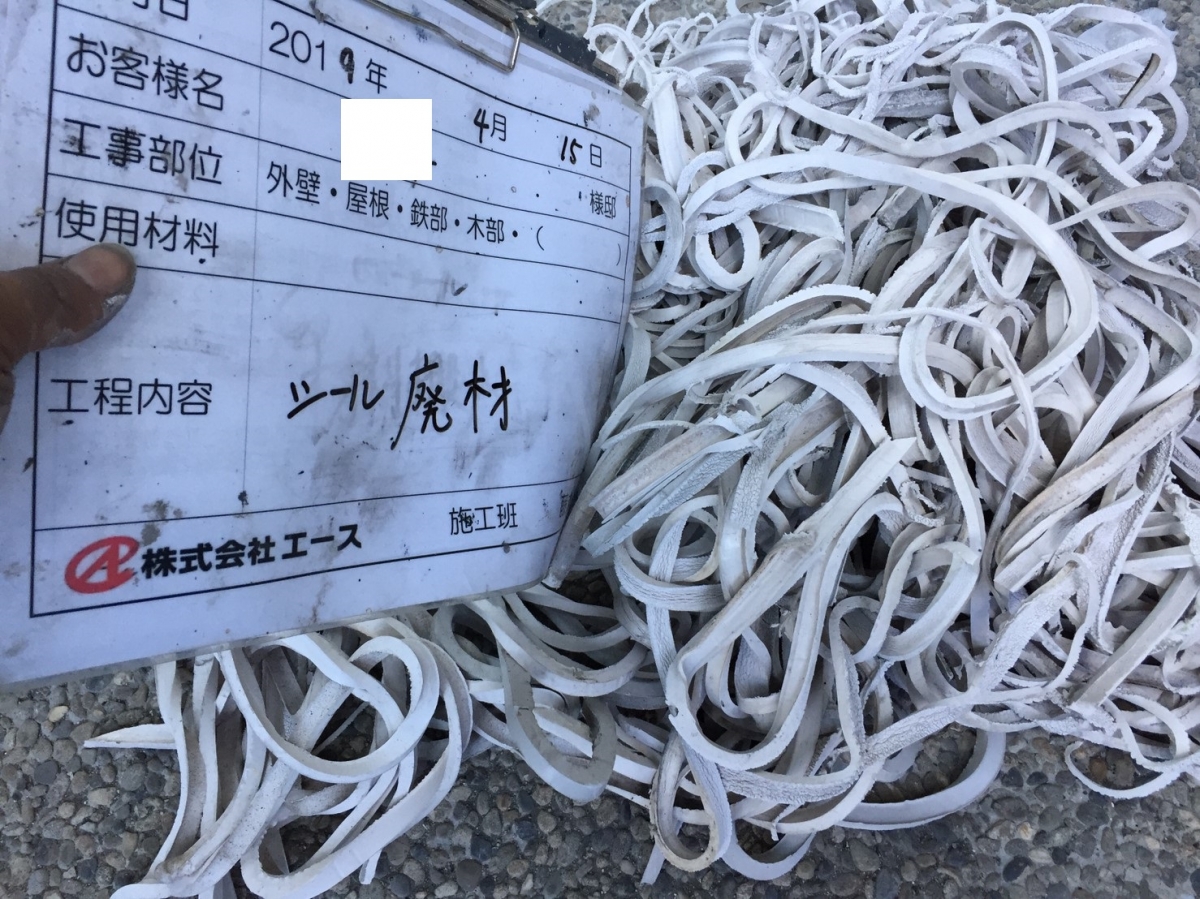 日 2019年 4月 15日
お客様名 様邸
工事部位 外壁・屋根・鉄部・木部・( )
使用材料
工程内容 シール廃材
株式会社エース 施工班